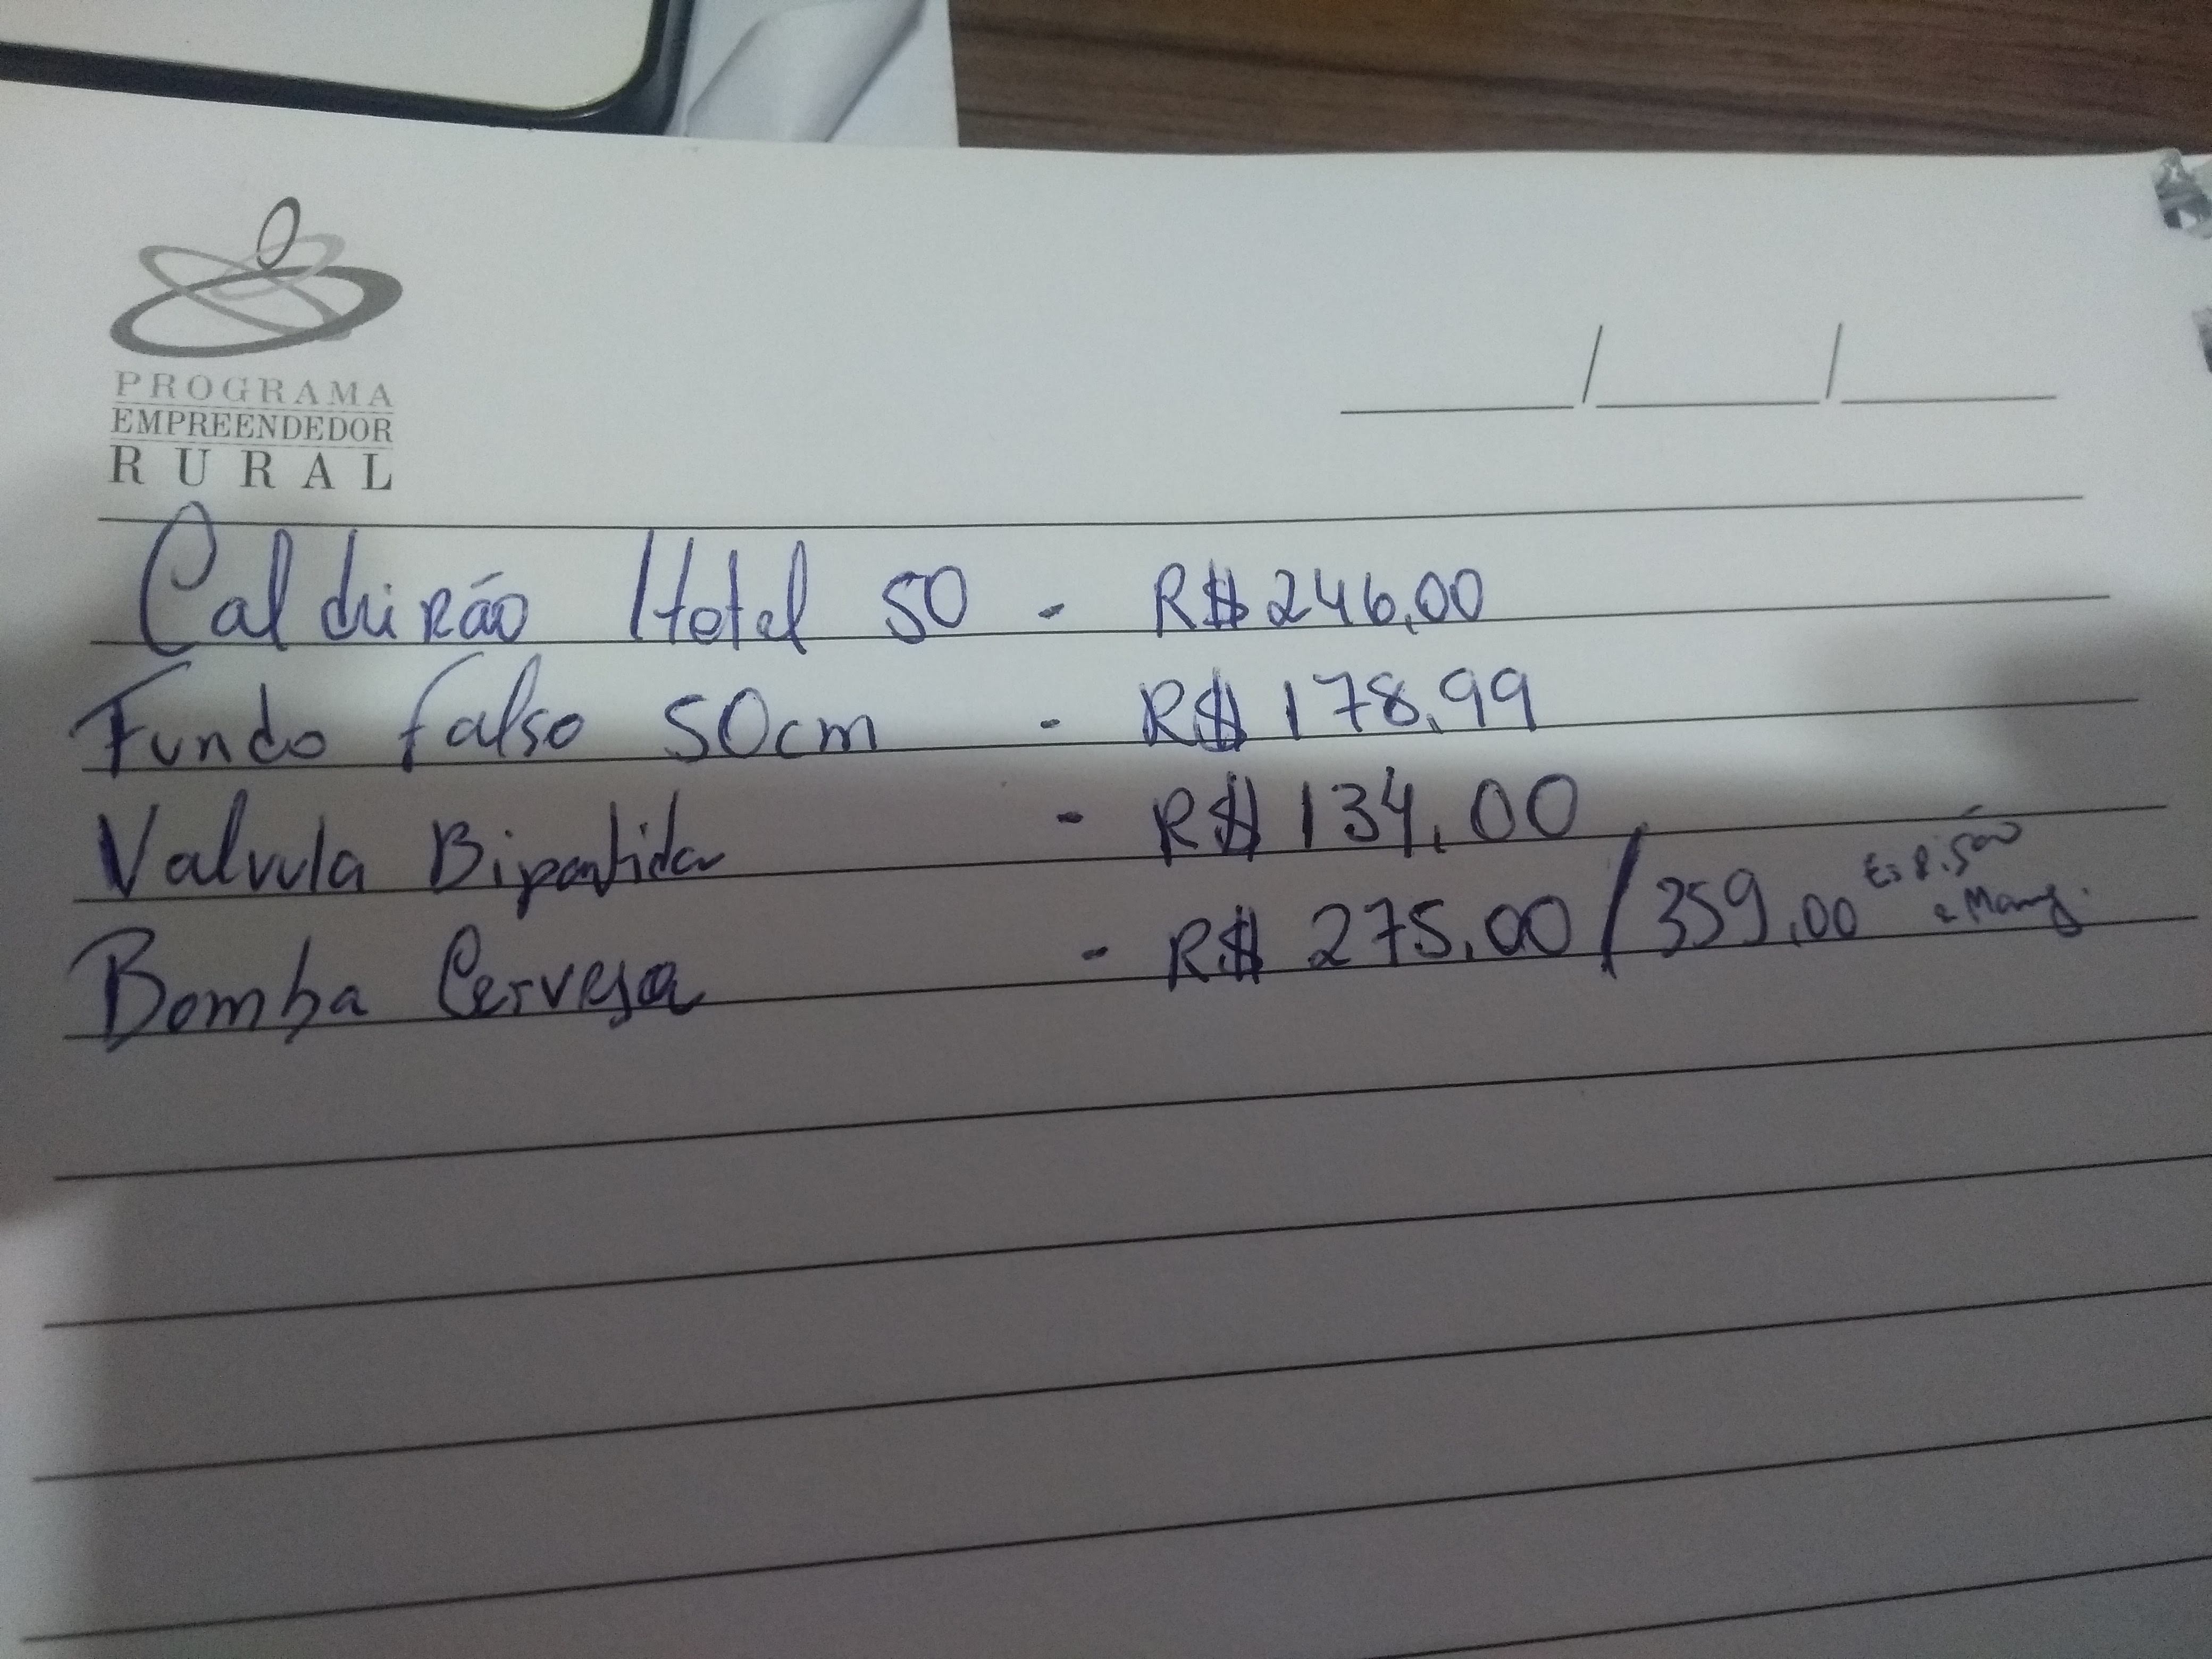 PROGRAMA
EMPREENDEDOR
RURAL
Caldeirão Hotel 50 - R$ 246,00
Fundo falso 50cm - R$ 178,99
Valvula Bipartida - R$ 134,00
Bomba Cerveja - R$ 275,00 / 359,00
e Mang.